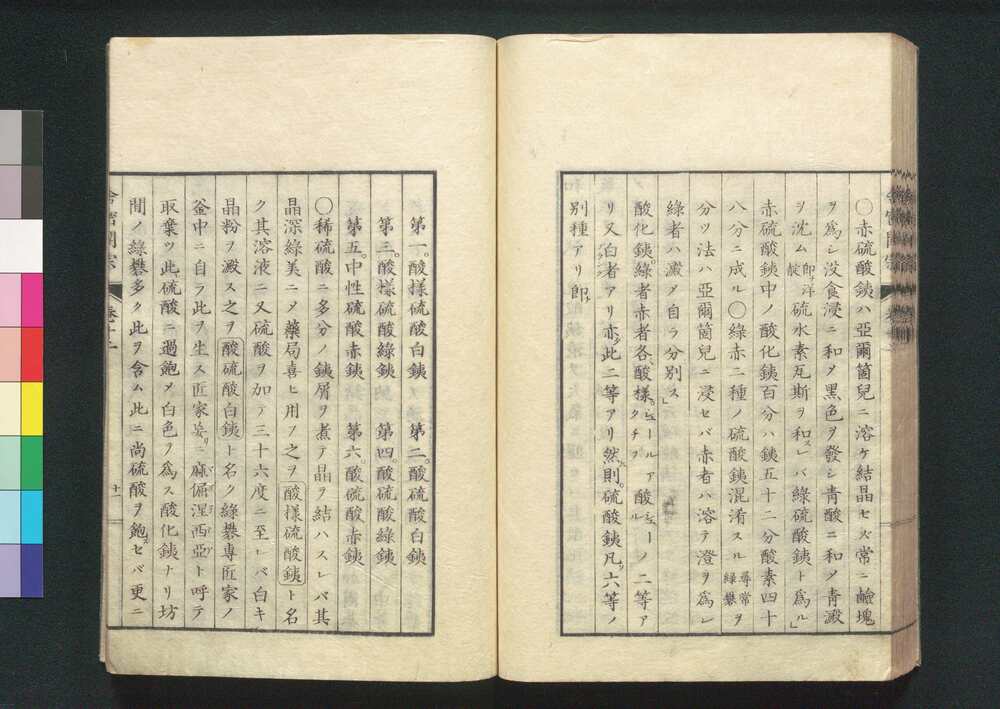 ○赤硫酸銕ハ亞爾箇兒ニ溶ケ結晶セズ常ニ鹼塊
ヲ爲シ没食浸ニ和〆黒色ヲ發シ青酸ニ和〆青澱
ヲ沈ム即洋靛硫水素瓦斯ヲ和スレバ綠硫酸銕ト爲ル」
赤硫酸銕中ノ酸化銕百分ハ銕五十二分酸素四十
八分ニ成ル○綠赤二種ノ硫酸銕混淆スル尋常綠礬ヲ
分ツ法ハ亞爾箇兒ニ浸セバ赤者ハ溶テ澄ヲ爲シ
綠者ハ澱〆自ラ分別ス」
酸化銕。綠者赤者各酸様ジュールアクチフ酸ジュールーノ二等ア
リ又白者アリ亦此二等アリ然則硫酸銕凡六等ノ
別種アリ即
第一。酸樣硫酸白銕 第二。酸硫酸白銕
第三。酸樣硫酸綠銕 第四酸硫酸綠銕
第五。中性硫酸赤銕 第六。酸硫酸赤銕
○稀硫酸ニ多分ノ銕屑ヲ煮テ晶ヲ結ハスレバ其
晶深綠美ニ〆藥局喜ヒ用フ之ヲ酸樣硫酸銕ト名
ク其溶液ニ又硫酸ヲ加テ三十六度ニ至レバ白キ
晶粉ヲ澱ス之ヲ酸硫酸白銕ト名ク綠礬專匠家ノ
釜中ニ自ラ此ヲ生ス匠家妄リニ麻倔涅西亞ト呼テ
取棄ツ此硫酸ニ過飽〆白色ヲ爲ス酸化銕ナリ坊
間ノ綠礬多ク此ヲ含ム此ニ尚硫酸ヲ飽セバ更ニ
十一